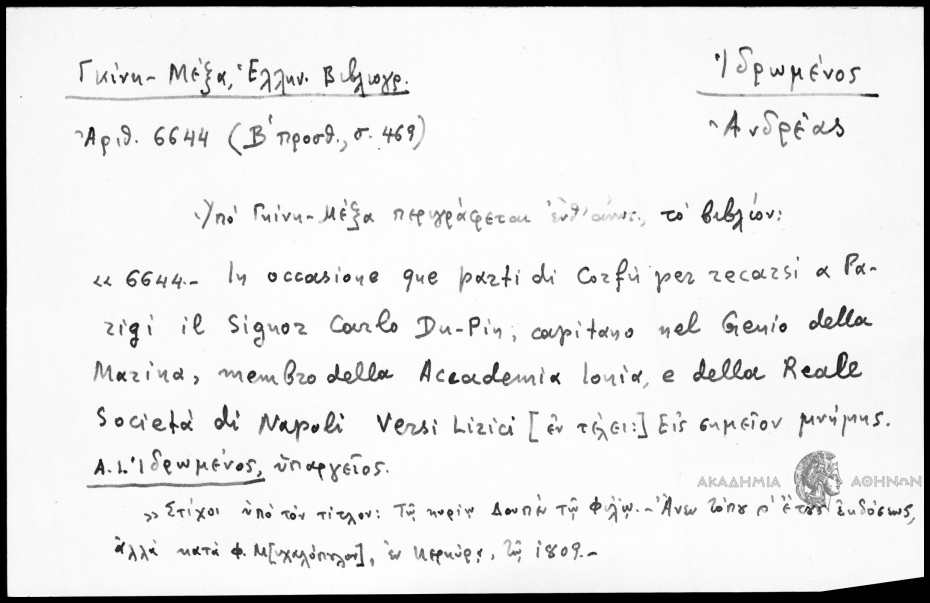 Γκίνη - Μέξα, Ἑλλην. Βιβλιογρ.
Ἰδρωμένος
Ἀριθ. 6644 (Β' προσθ., σ. 469)
Ἀνδρέας
Ὑπό Γκίνη - Μέξα περιγράφεται τό βιβλίον:
« 6644.- In occasione que parti di Corfù per recarsi a Pa-
rigi il Signor Carlo Du-Pin, capitano nel Genio della
Marina, membro della Accademia Ionia, e della Reale
Società di Napoli Versi Lirici [ἐν τέλει:] Εἰς σημεῖον μνήμης.
Α. Ι. Ἰδρωμένος, ὑπαργεῖος.
ΑΚΑΔΗΜΙΑ ΑΘΗΝΩΝ
» Στίχοι ὑπό τόν τίτλον: Τῷ κυρίῳ Δουπέν τῷ φίλῳ. - Ἄνευ τόπου κ' ἔτους ἐκδόσεως,
ἀλλά κατά Φ. Μ[ιχαλόπουλον], ἐν Κερκύρᾳ, τῷ 1809.-